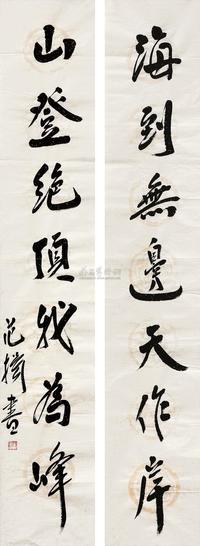 海到無邊天作岸
山登絕頂我為峰
范攜書